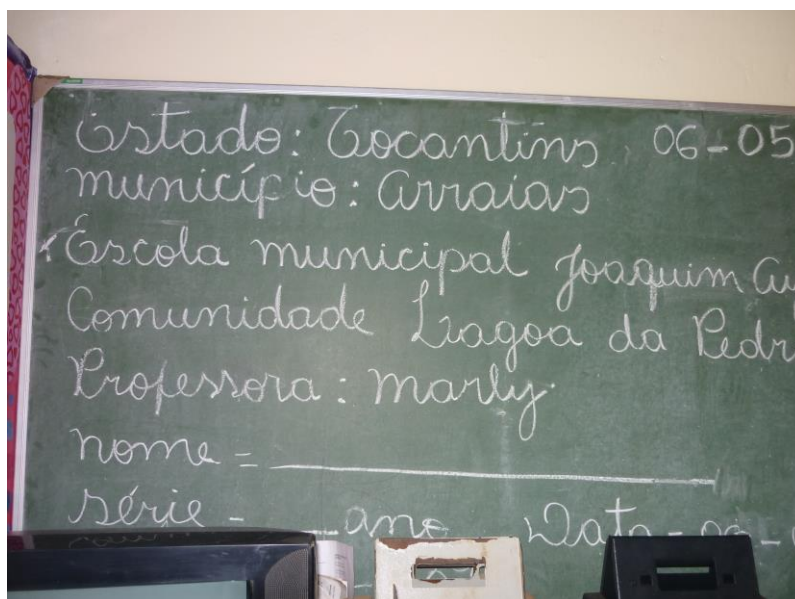 Estado: Tocantins 06-05
município: Arraias
Escola municipal Joaquim
Comunidade Lagoa da Pedr
Professora: Marly
nome =
série - ano Data - 06 -